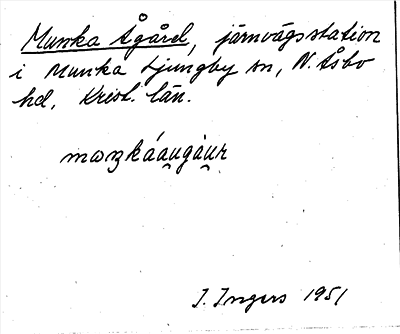 Munka Ågård, järnvägsstation
i Munka Ljungby sn, N. Åsbo
hd, Krist. län.
I. Ingers 1951